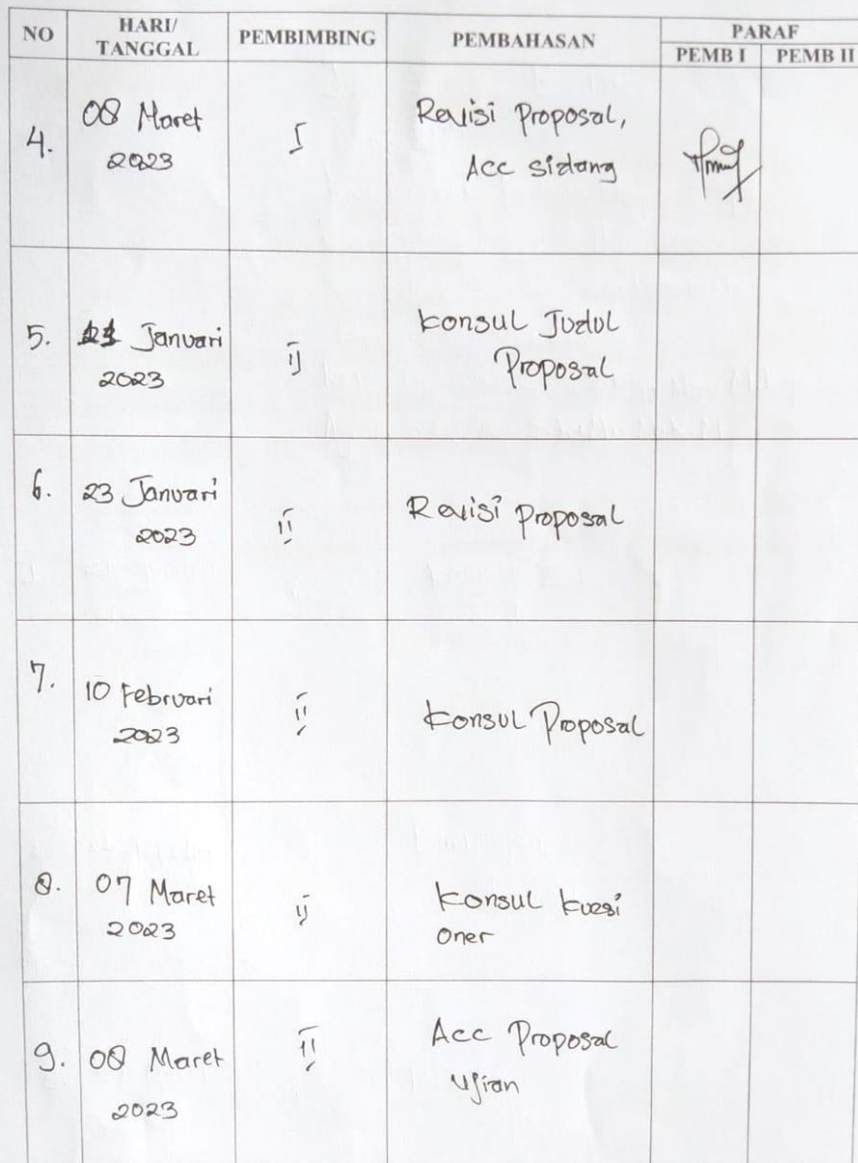 NO HARI/ TANGGAL PEMBIMBING PEMBAHASAN PARAF
PEMB I PEMB II
4. 08 Maret 2023 I Revisi Proposal,
Acc sidang
5. Januari 2023 II Konsul Judul
Proposal
6. 23 Januari 2023 II Revisi Proposal
7. 10 Februari 2023 II Konsul Proposal
8. 07 Maret 2023 II Konsul kuesi
oner
9. 08 Maret 2023 II Acc Proposal
Ujian